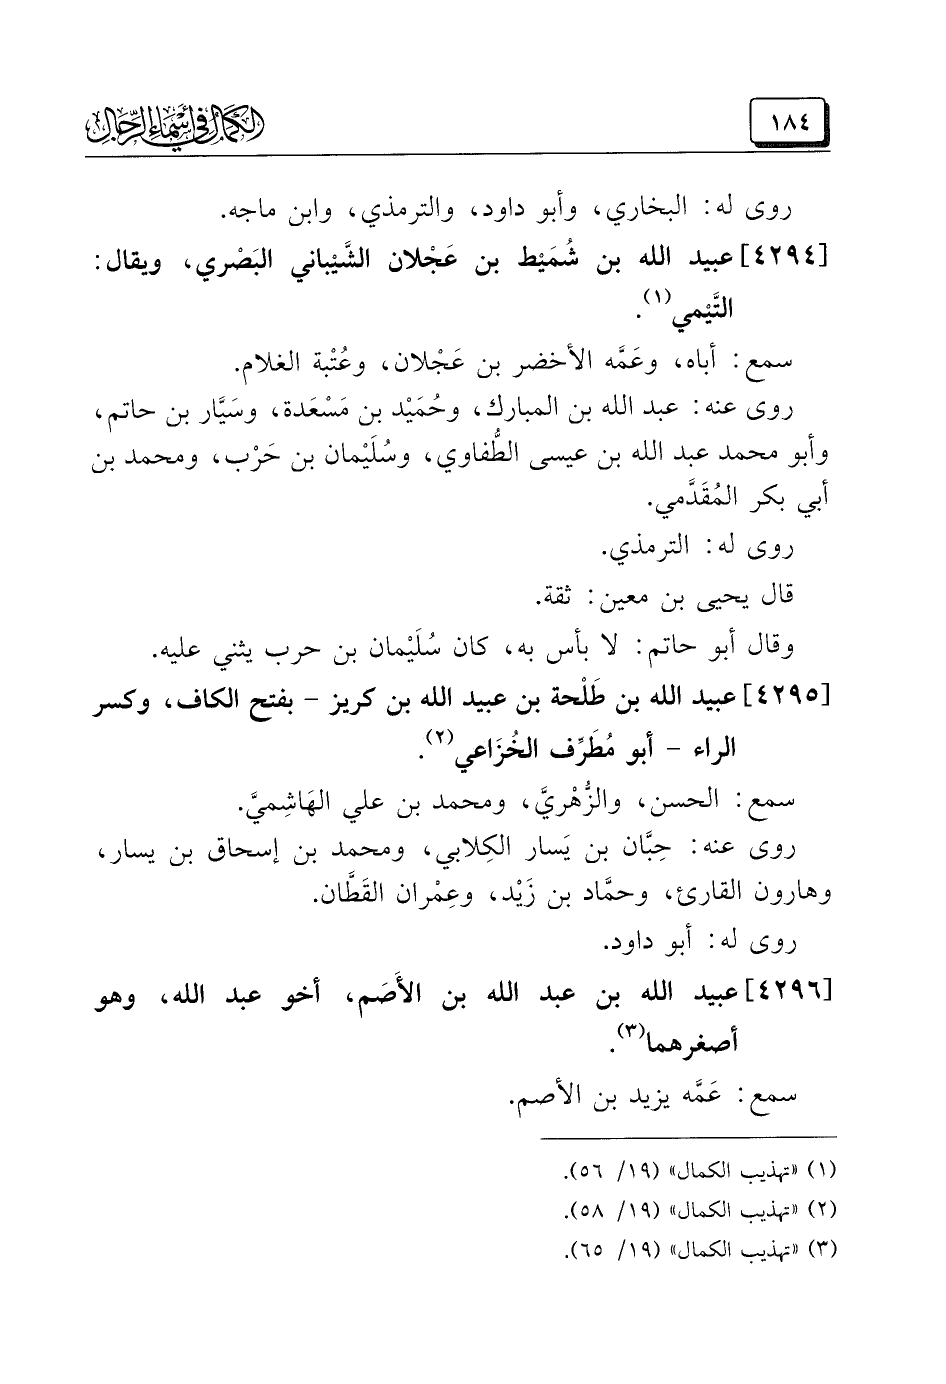 ١٨٤
الكمال في أسماء الرجال
روى له: البخاري، وأبو داود، والترمذي، وابن ماجه.
[٤٢٩٤] عبيد الله بن شُمَيْط بن عَجْلان الشَّيْباني البَصْري، ويقال:
التَّيْمي(١).
سمع: أباه، وعَمَّه الأخضر بن عَجْلان، وعُتْبة الغلام.
روى عنه: عبد الله بن المبارك، وحُمَيْد بن مَسْعَدة، وسَيَّار بن حاتم،
وأبو محمد عبد الله بن عيسى الطُّفاوي، وسُلَيْمان بن حَرْب، ومحمد بن
أبي بكر المُقَدَّمي.
روى له: الترمذي.
قال يحيى بن معين: ثقة.
وقال أبو حاتم: لا بأس به، كان سُلَيْمان بن حرب يثني عليه.
[٤٢٩٥] عبيد الله بن طَلْحة بن عبيد الله بن كريز - بفتح الكاف، وكسر
الراء - أبو مُطَرِّف الخُزَاعي(٢).
سمع: الحسن، والزُّهْريَّ، ومحمد بن علي الهَاشِميَّ.
روى عنه: حِبَّان بن يَسار الكِلابي، ومحمد بن إسحاق بن يسار،
وهارون القارئ، وحمَّاد بن زَيْد، وعِمْران القَطَّان.
روى له: أبو داود.
[٤٢٩٦] عبيد الله بن عبد الله بن الأَصَم، أخو عبد الله، وهو
أصغرهما(٣).
سمع: عَمَّه يزيد بن الأصم.
(١) «تهذيب الكمال» (١٩/ ٥٦).
(٢) «تهذيب الكمال» (١٩/ ٥٨).
(٣) «تهذيب الكمال» (١٩/ ٦٥).